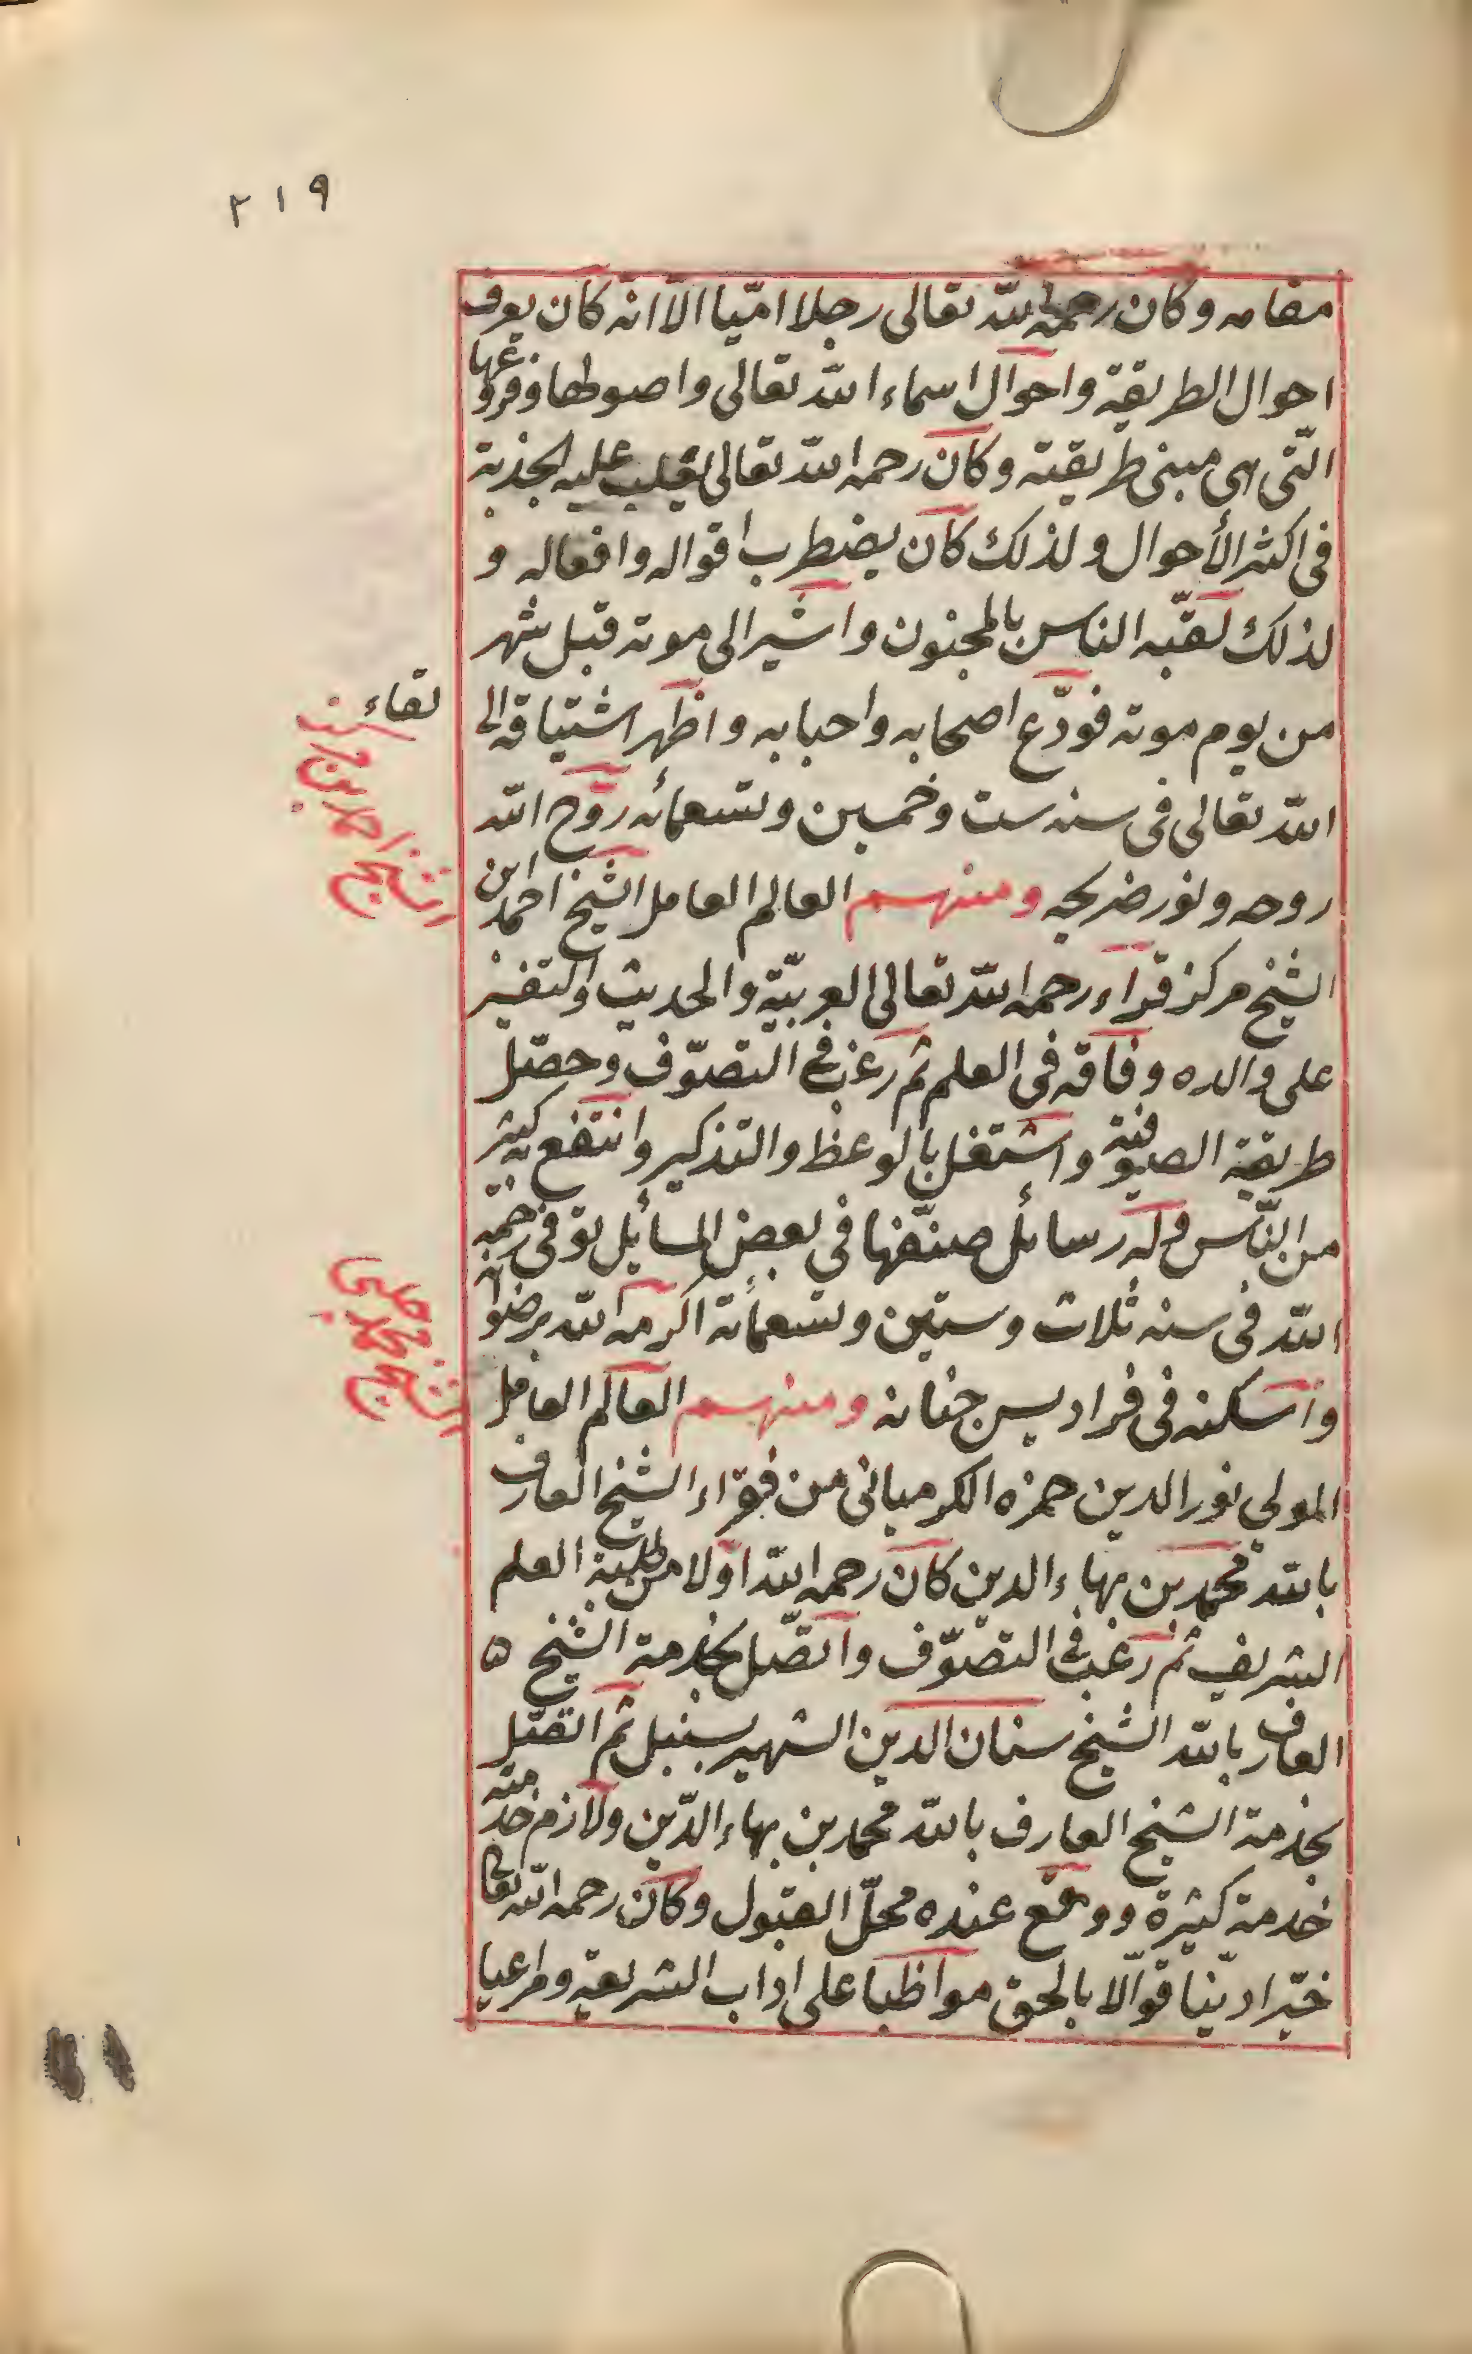 ٢١٩
مقامه وكان رحمه الله تعالى رجلا امّيا الّا انه كان يعرف
احوال الطريقة واحوال اسماء الله تعالى واصولها وفروعها
التّى هى مبنى طريقته وكان رحمه الله تعالى يغلب عليه الجذبة
فى اكثر الأحوال ولذلك كان يضطرب اقواله وافعاله و
لذلك لقّبه الناس بالمجنون واشير الى موته قبل شهر
من يوم موته فودّع اصحابه واحبابه واظهر اشتياقه الى
لقاء
الله تعالى فى سنه ست وخمسين وتسعمائه روّح الله
روحه ونور ضريحه ومنهم العالم العامل الشيخ احمد ابن
الشيخ مركز قراء رحمه الله تعالى العربيّة والحديث والتفسير
على والده وفاقه فى العلم ثم رغب فى التصوّف وحصّل
طريقة الصوفية واشتغل بالوعظ والتذكير وانتفع به كثير
من النّاس وله رسائل صنّفها فى بعض المسائل توفى رحمه
الله فى سنه ثلاث وستين وتسعمائة اكرمه الله برضوانه
واسكنه فى فراديس جنانه ومنهم العالم العامل
المولى نور الدين حمزه الكرميانى من فقراء الشيخ العارف
بالله محمد بن بهاء الدين كان رحمه الله اولا من طلبة العلم
الشريف ثم رغب فى التصوّف واتصّل بخدمة الشيخ ٥
العارف بالله الشيخ سنان الدين الشهير بسنبل ثم اتصّل
بخدمة الشيخ العارف بالله محمد بن بهاء الدّين ولازم خدمته
خدمة كثيرة ووقع عنده محلّ القبول وكان رحمه الله تعالى
خيّرا ديّنا قوّالا بالحق مواظبا على اداب الشريعة ومراعيا
الشيخ احمد بن مركز
الشيخ